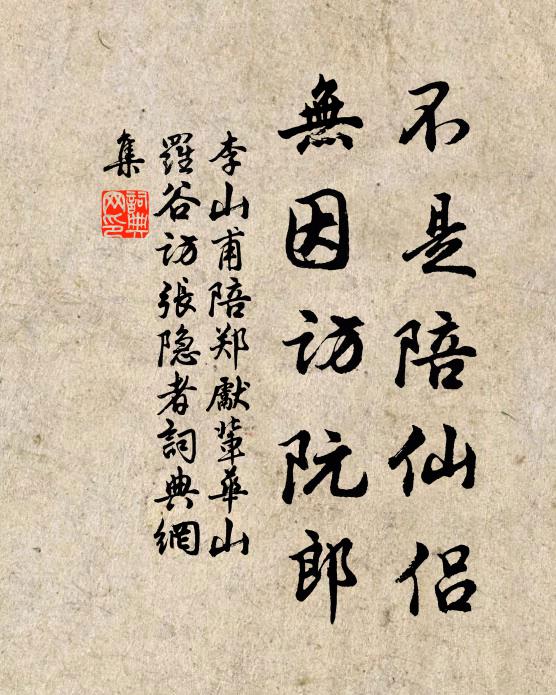 不是陪仙侣
無因訪阮郎
李山甫陪郑獻輦華山
羅谷访張隐者詞典網
集
詞典
网印